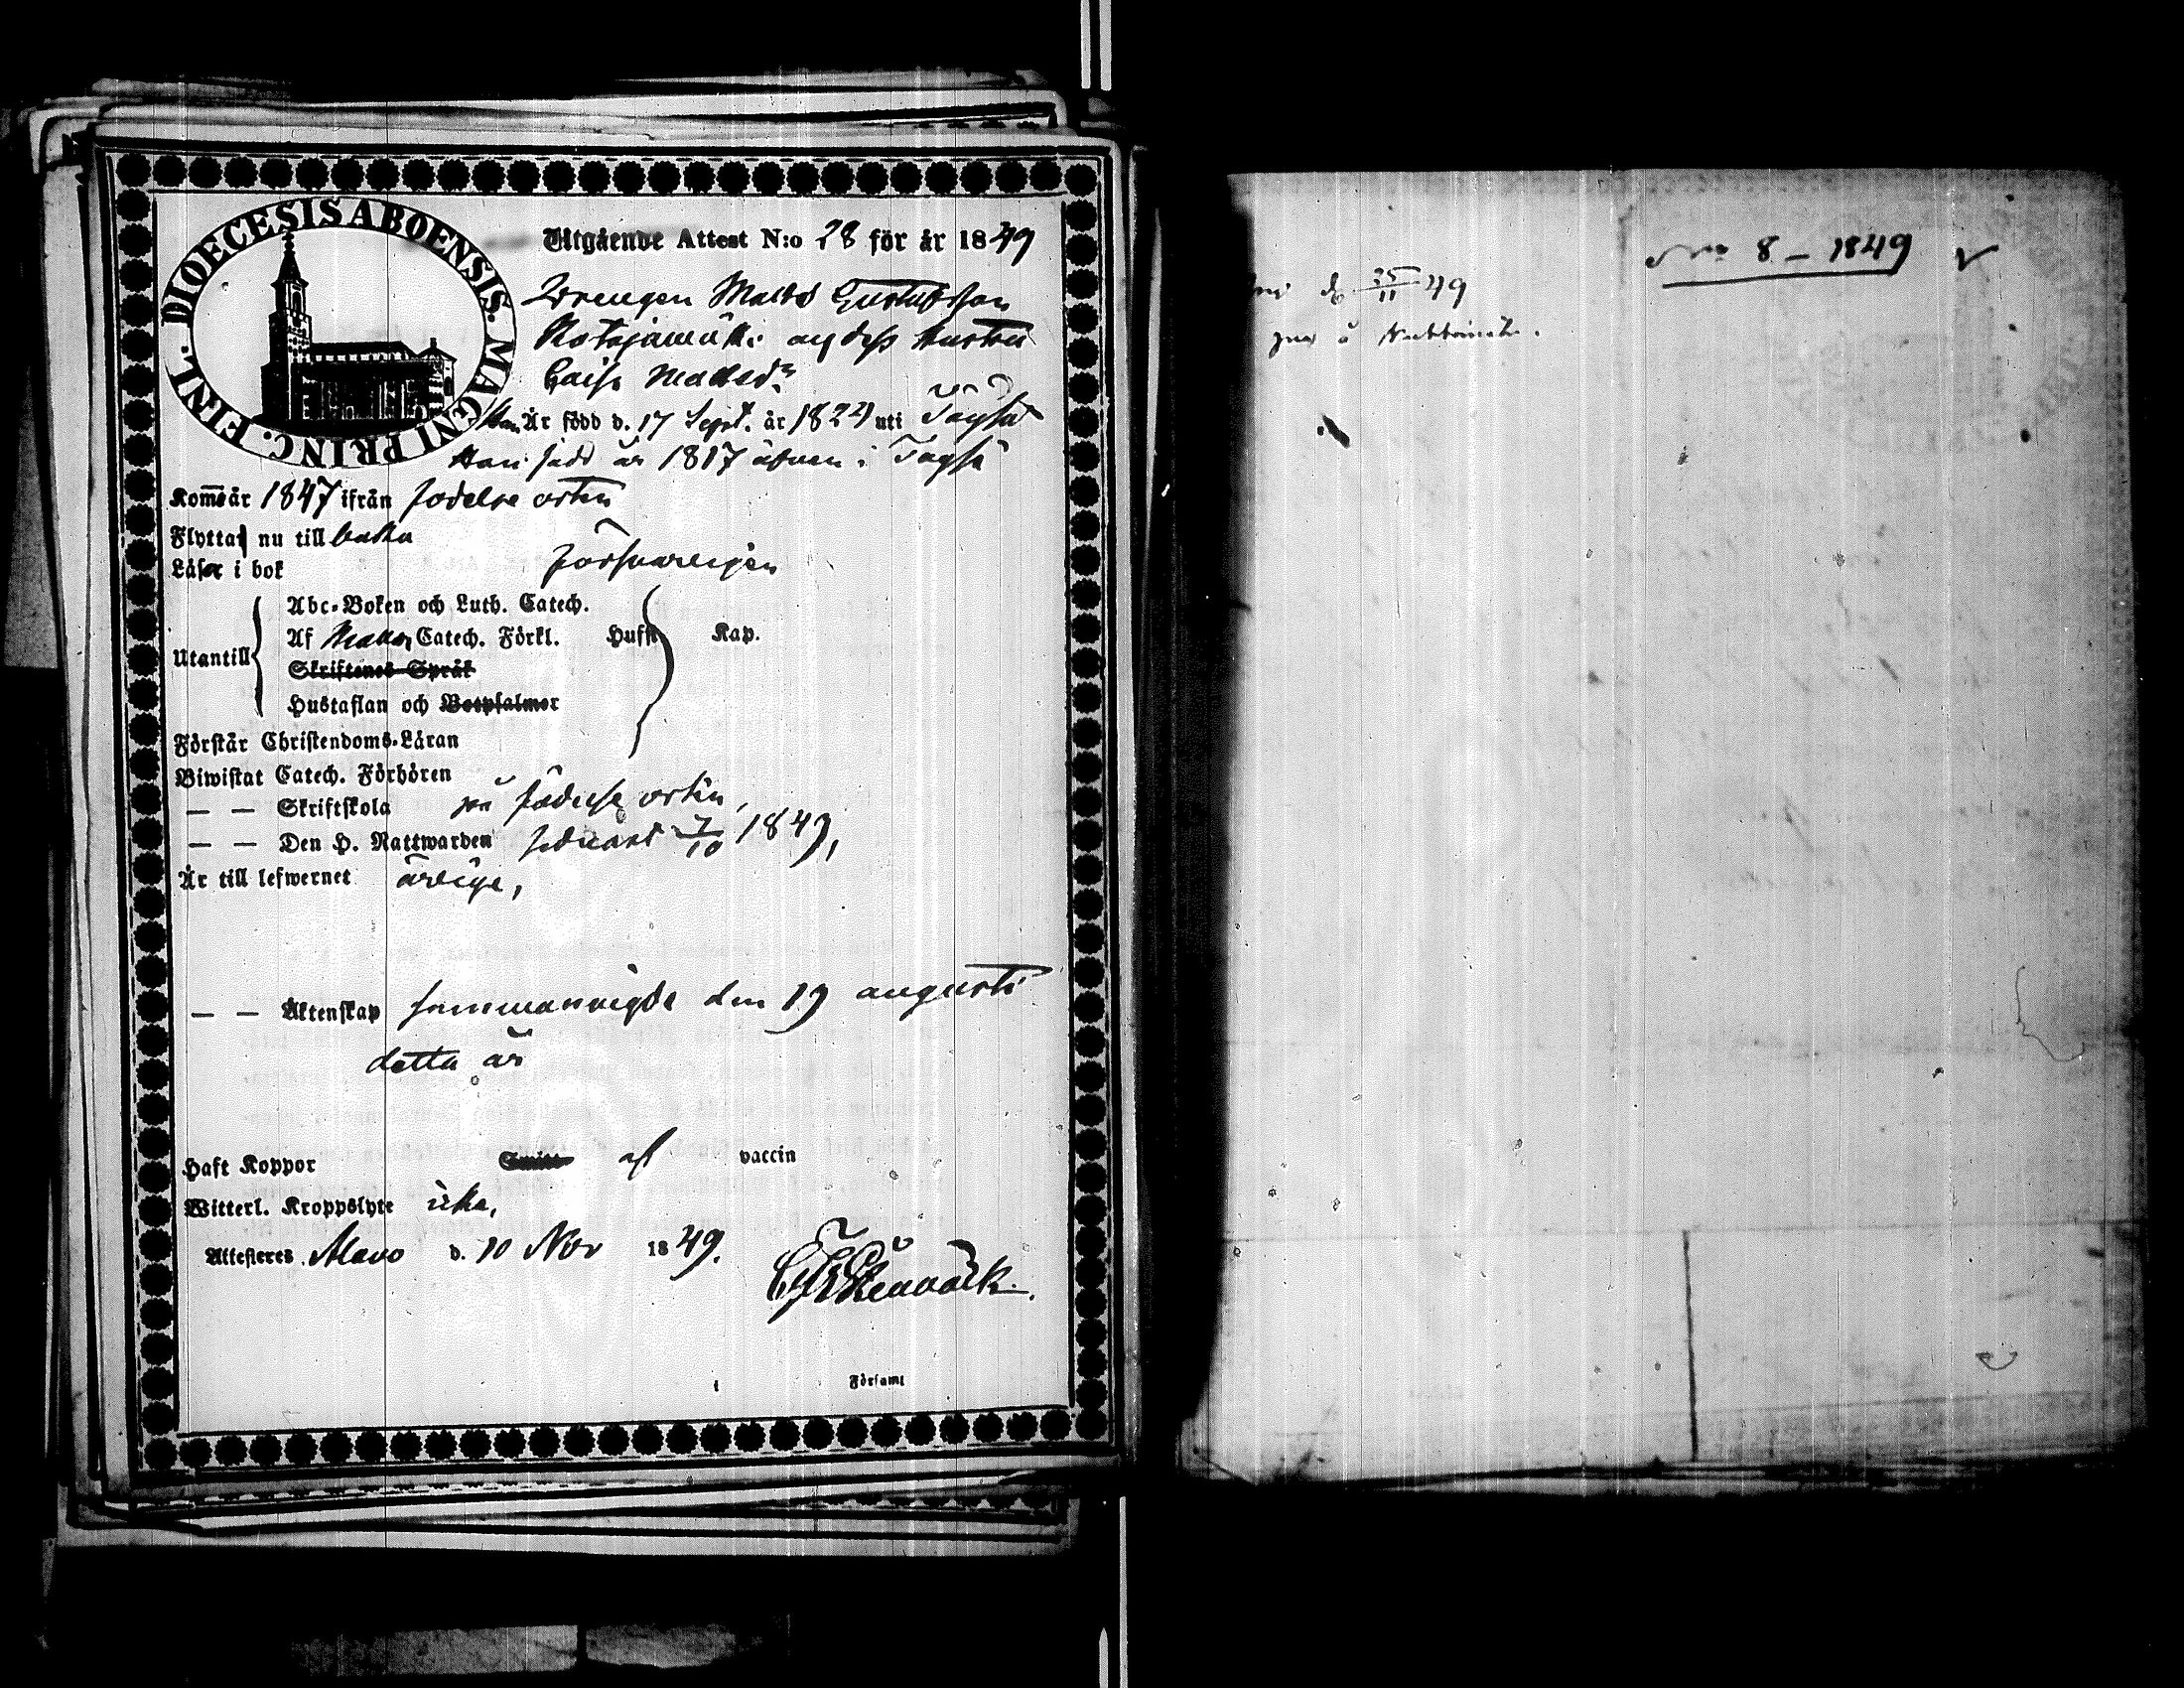 DIOECESIS ABOENSIS. MAGNI PRINC. FINL.
Utgående Attest N:o 28 för år 1849
Drengen Matts Gustafsson
Katajamäki och dess hustru
Caisa Mattsdr
Han Är född d. 17 Sept. år 1824 uti Töysä
Hon född år 1817 äfven i Töysä
Komne år 1847 ifrån födelse orten
Flytta nu till baka
Läser i bok försvarligen
Abc-Boken och Luth. Catech.
Af Catech. Förkl. Hufst. Kap.
Utantill
Skriftenes Språk
Hustaflan och Botpsalmer
Förstår Christendoms-Läran
Biwistat Catech. Förhören
— — Skriftskola på födelse orten,
— — Den H. Nattwarden sednast 7/10 1849,
Är till lefwernet ärlige,
— — Äktenskap sammanvigde den 19 augusti
detta år
Haft Koppor Smitt af vaccin
Witterl. Kroppslyte icke,
Attesteres Alavo d. 10 Nov 1849.
Stenbäck.
Församl
No 8 – 1849
d. 25/11 49